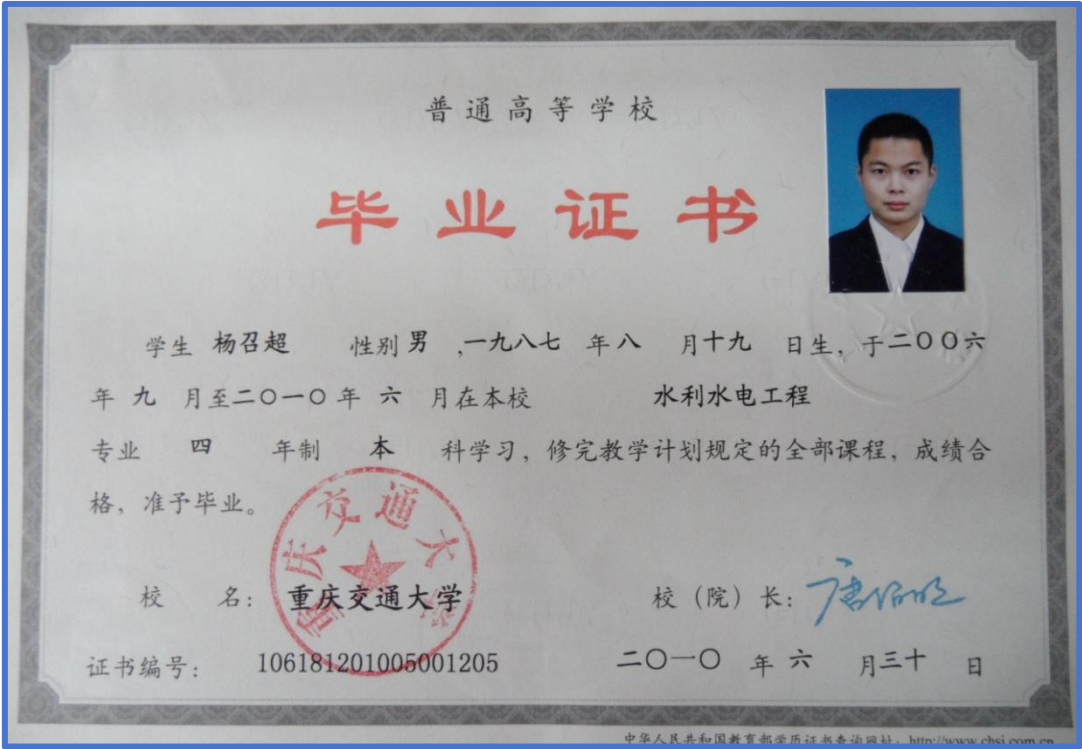 普通高等学校
毕业证书
学生 杨召超 性别 男 ,一九八七 年 八 月 十九 日生, 于二〇〇六
年 九 月至二〇一〇年 六 月在本校 水利水电工程
专业 四 年制 本 科学习, 修完教学计划规定的全部课程, 成绩合
格, 准予毕业。
重庆交通大学
校 名: 重庆交通大学 校（院）长: 唐伯明
证书编号: 106181201005001205 二〇一〇 年 六 月 三十 日
中华人民共和国教育部学历证书查询网址: http://www.chsi.com.cn